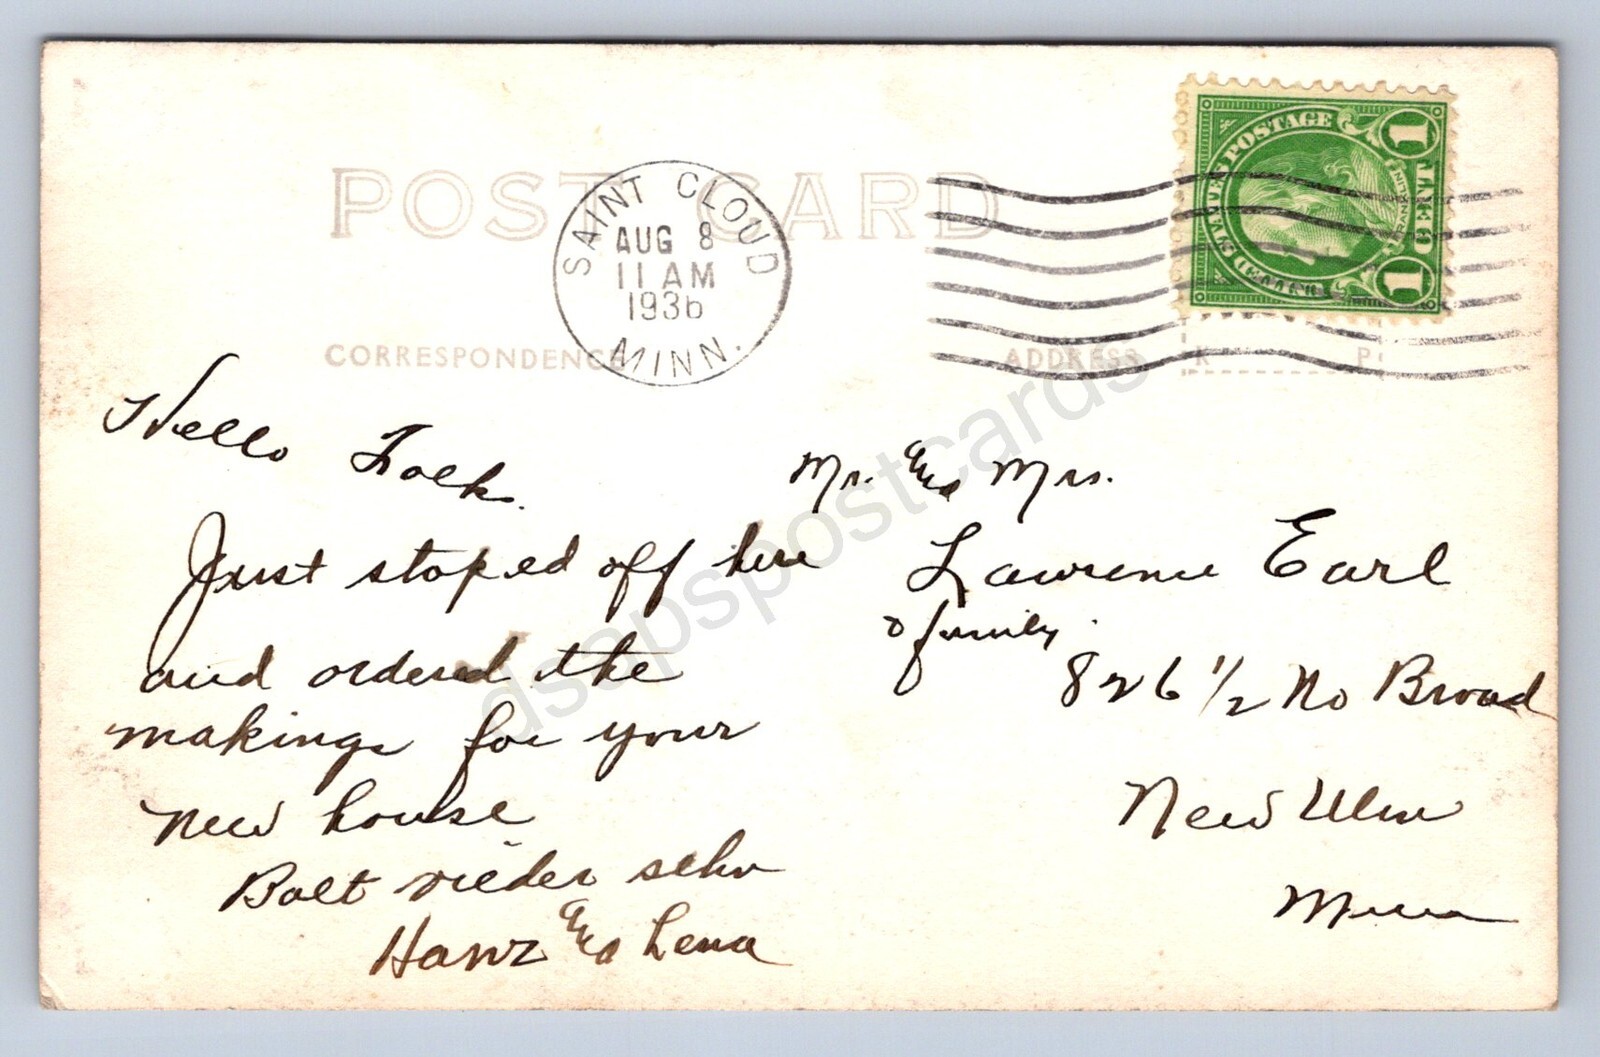 POST CARD
SAINT CLOUD
AUG 8
11 AM
1936
MINN.
UNITED STATES POSTAGE
FRANKLIN
1 CENT 1
CORRESPONDENCE
ADDRESS
K P
Hello Folk.
Just stoped off here
and ordered the
makings for your
New house
Balt vieder sehn
Hanz and Lena
Mr. and Mrs.
Lawrence Earl
& family.
826 1/2 No Broad
New Ulm
Minn
dsapspostcards